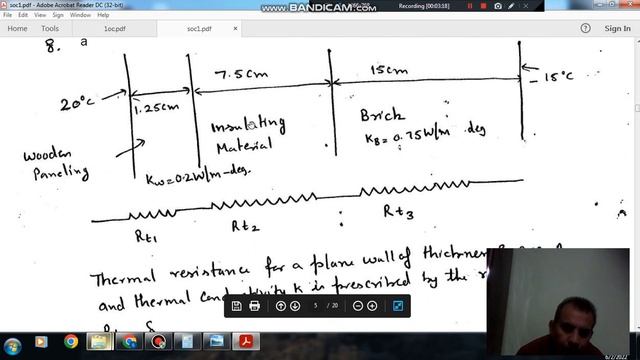 soc1.pdf - Adobe Acrobat Reader DC (32-bit)
www.BANDICAM.com
Recording [00:03:18]
File Edit View Sign Window Help
Home Tools 1oc.pdf soc1.pdf × Sign In
8. a
7.5cm 15cm
20°c 1.25cm - 15°C
Insulating Material
Brick
KB = 0.75W/m deg
Wooden Paneling
Kw=0.2W/m-deg.
Rt1 Rt2 Rt3
Thermal resistance for a plane wall of thickness
and thermal conductivity k is prescribed by the
5 / 20
6/2/2022